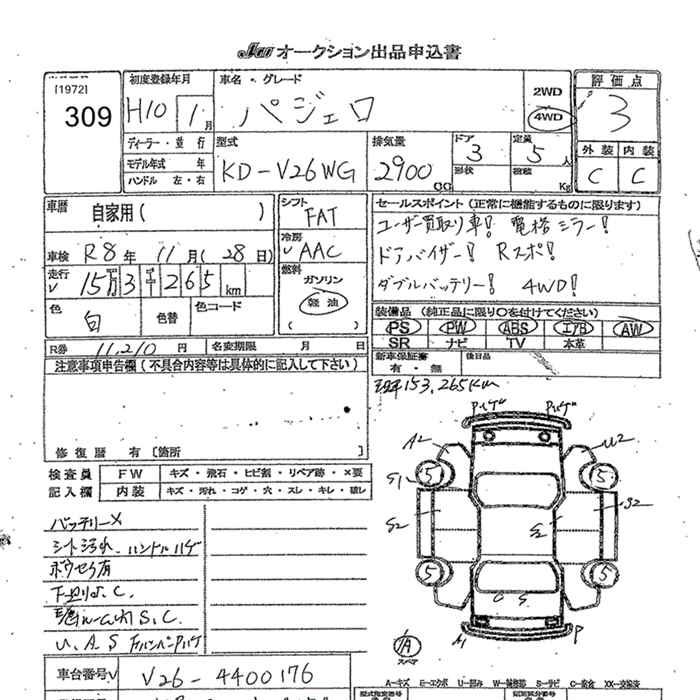 JAA オークション出品申込書
[1972]
309
初度登録年月
H10 1月
車名・グレード
パジェロ
2WD
4WD
評価点
3
ディーラー・並行
モデル年式 年
ハンドル 左・右
型式
KD-V26WG
排気量
2900 CC
ドア
3
形状
定員
5人
積載
Kg
外装 内装
C C
車歴
自家用( )
車検 R8年 11月(28日)
走行 15万3千265km
色
白
色替
色コード
シフト
FAT
冷房
AAC
燃料
ガソリン
軽油
( )
R券 11,210円 名変期限 月 日
セールスポイント(正常に機能するものに限ります)
ユーザー買取り車! 電格ミラー!
ドアバイザー! Rスポ!
ダブルバッテリー! 4WD!
装備品(純正品に限り○を付けてください)
PS PW ABS エアB AW
SR ナビ TV 本革
新車保証書
有・無
後日品
注意事項申告欄(不具合内容等は具体的に記入して下さい)
修復歴 有〔箇所 〕
153,265km
検査員
記入欄
FW キズ・飛石・ヒビ割・リペア跡・×要
内装 キズ・汚れ・コゲ・穴・スレ・キレ・破レ
バッテリーメ
シート汚れ、ハンドルハゲ
下廻りS.C.
U.A.S
A2 U2
S1 5 5
S2 S2 S2
5 5
A
スペア
P
車台番号 V26-4400176
A=キズ E=エクボ U=凹み W=補修跡 S=サビ C=腐食 XX=交換済